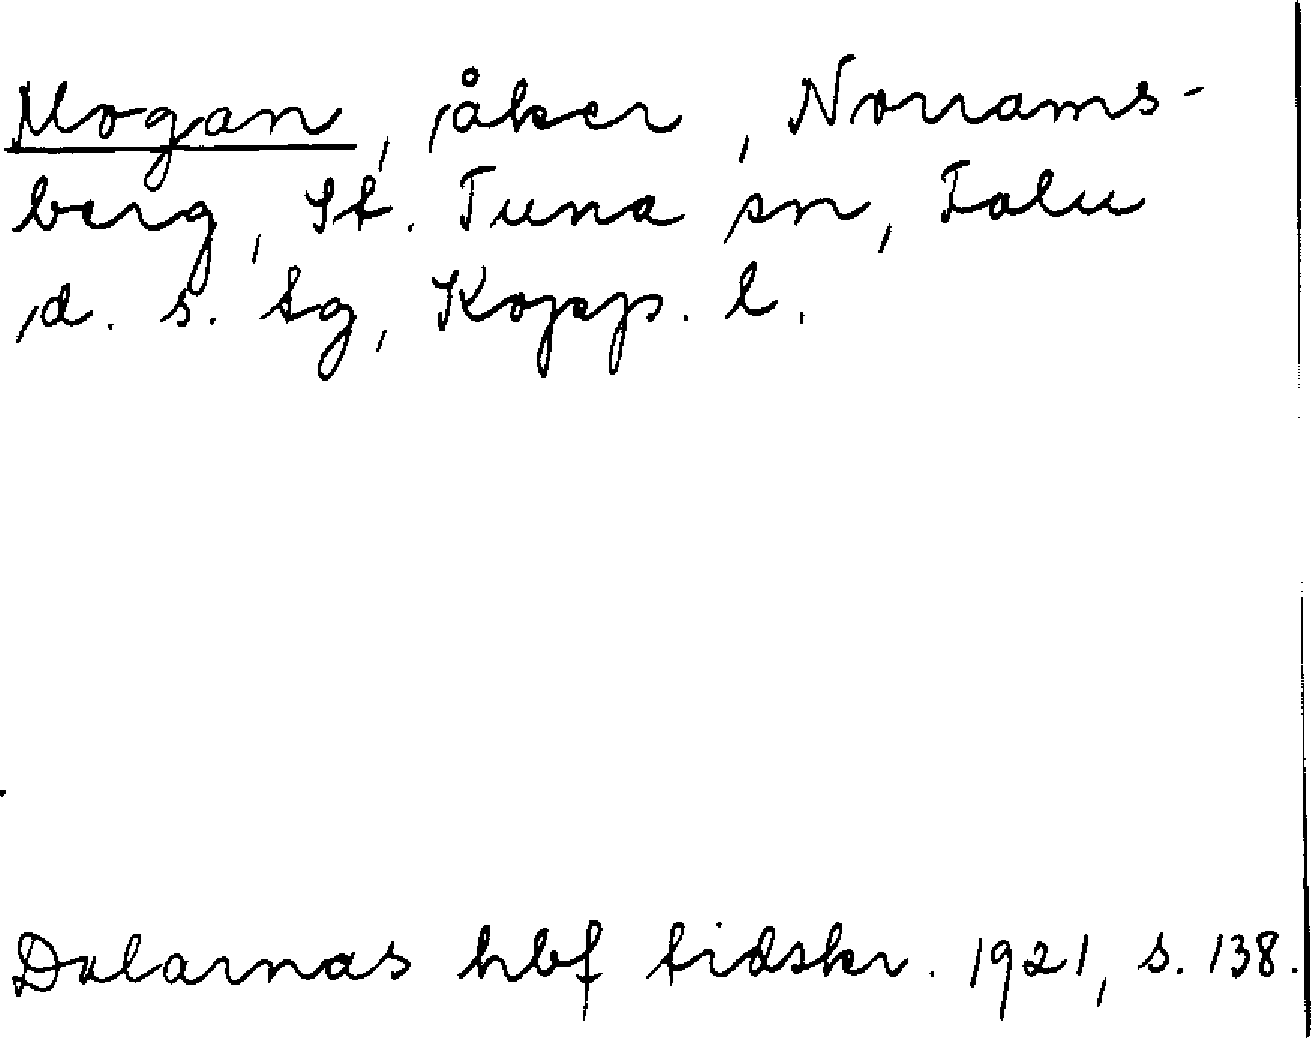 Mogan, åker, Norrams-
berg, St. Tuna sn, Falu
d. s. tg, Kopp. l.
Dalarnas hbf tidskr. 1921, s. 138.